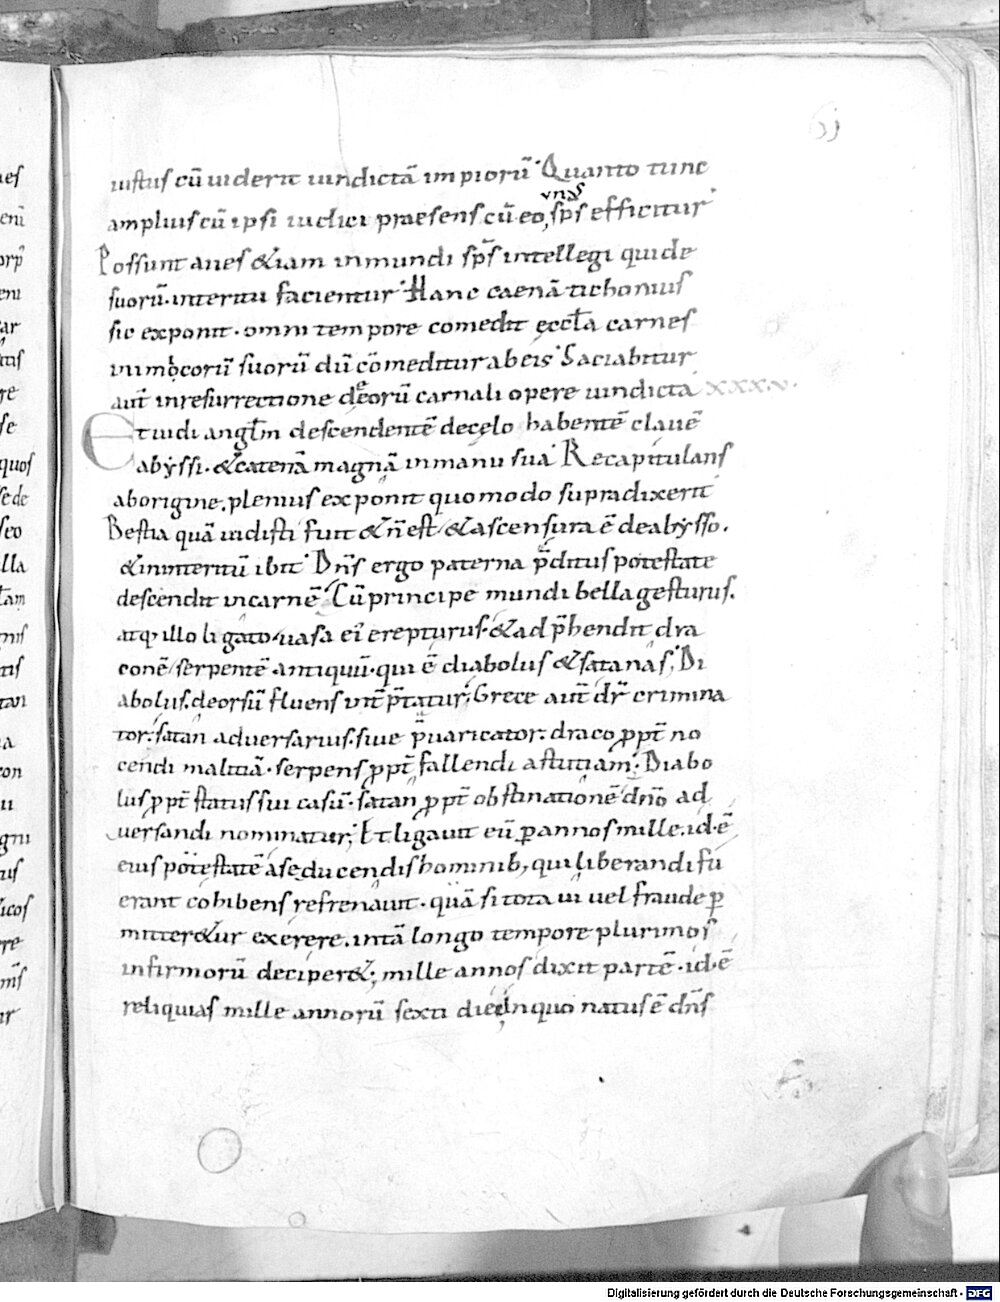 61
iustus cū uiderit uindictā impiorū. Quanto tunc
amplius cū ipsi iudici praesens cū eo, vnus sp̄s efficitur
Possunt aues &iam inmundi sp̄s intellegi qui de
suorū. interitu facientur. Hanc caenā tichonius
sic exponit. omni tempore comedit ęccl̄a carnes
inimicorū suorū dū cōmeditur ab eis. Saciabitur
aut̄ in resurrectione de eorū carnali opere uindicta xxxv.
Et uidi angl̄m descendentē de cęlo habentē clauē
abyssi. & catenā magnā in manu sua. Recapitulans
ab origine. plenius exponit quomodo supra dixerit
Bestia quā uidisti fuit & n̄ est & ascensura ē de abysso.
& in interitū ibit. Dn̄s ergo paterna p̄ditus potestate
descendit in carnē. Cū principe mundi bella gesturus.
atq; illo ligato uasa ei erepturus. & adp̄hendit dra
conē serpentē antiquū. qui ē diabolus & satanas; Di
abolus. deorsū fluens int̄ p̄tatur; Grece aut̄ dr̄ crimina
tor. satan aduersarius. siue p̄uaricator. draco ppt̄ no
cendi malitiā. serpens ppt̄ fallendi astutiam; Diabo
lus ppt̄ status sui casū. satan ppt̄ obstinationē dn̄o ad
uersandi nominatur; Et ligauit eū p annos mille. id. ē
eius potestatē a seducendis hominib; qui liberandi fu
erant cohibens refrenauit. quā si tota ui uel fraude p
mitter&ur exerere. in tā longo tempore plurimos
infirmorū deciper&; mille annos dixit partē. id. ē
reliquias mille annorū sexti diei in quo natus ē dn̄s
Digitalisierung gefördert durch die Deutsche Forschungsgemeinschaft - DFG